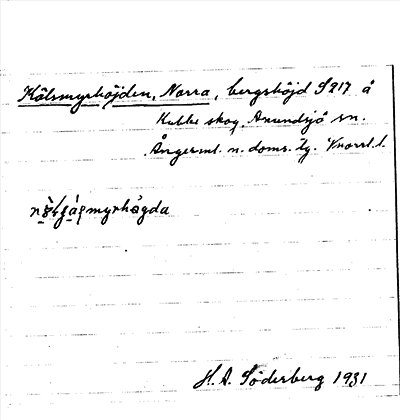 Kålsmyrhöjden, Norra, bergshöjd S217 å
Kubbe skog, Anundsjö sn.
Ångerml. n. doms. tg. Vnorrl. l.
myrhøgda
H. A. Söderberg 1931